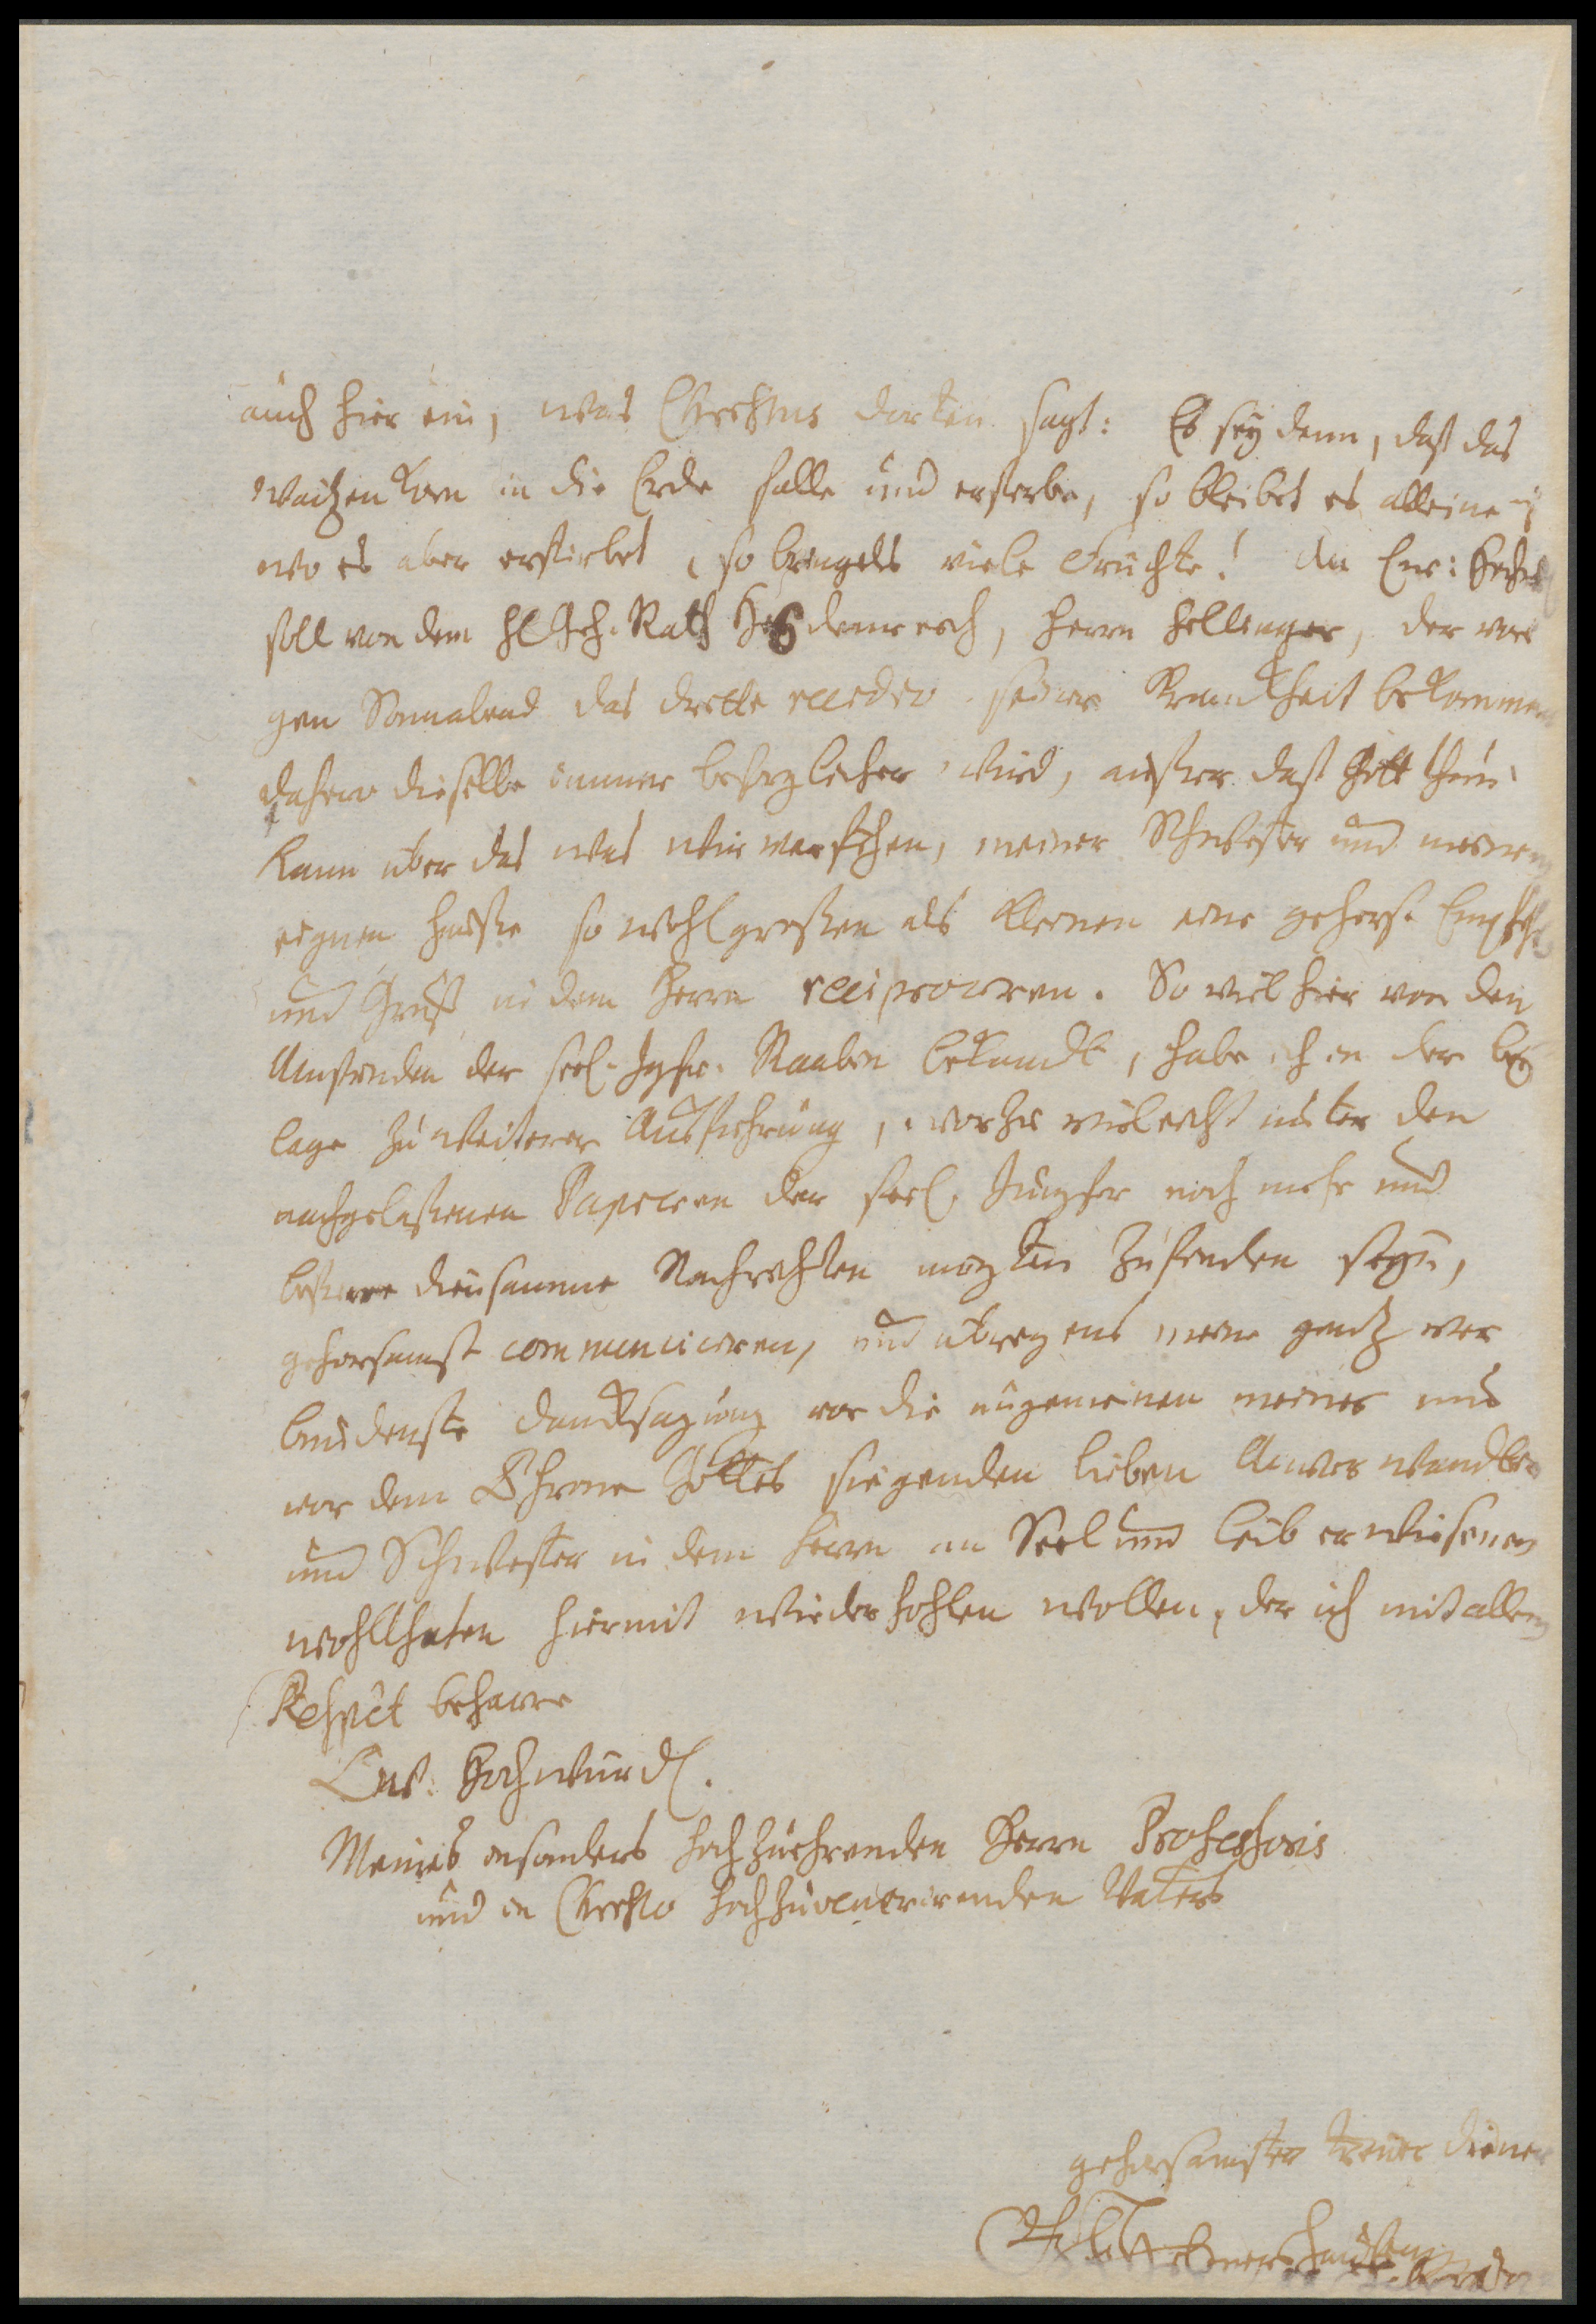 auch hier ein, was Christus dorten sagt: Es sey denn, daß das
Waitzenkorn in die Erde falle und ersterbe, so bleibet es alleine
wo es aber erstirbet, so bringets viele Früchte! An Ew: Hochw
soll von dem H Geh. Rath, Herrn Hellinger, der vori
gen Sonnabend das dritte recidiv seiner Krankheit bekommen
dahero dieselbe immer besorglicher wird, außer daß Gott thun
kann über das was wir verstehen, meiner Schwester und meinem
eignen Hauße so wohl großen als kleinen eine gehors. Empfehl
und Gruß in dem Herrn reciprociren. So viel hier von den
Umständen der seel. Jgfr. Raabin bekandt, habe ich in der bey
lage zu weiterer Ausführung, worzu vieleicht unter den
nachgelaßenen Papieren der seel. Jungfer noch mehr und
beßere diensamme Nachrichten mögten zu finden seyn,
gehorsamst communiciren, und übrigens meine gantz ver
bundenste Dancksagung vor die ungemeinen meiner nun
vor dem Throne Gottes siegenden lieben Anverwandten
und Schwester in dem Herrn an Seel und Leib erwiesenen
wohlthaten hiermit wiederhohlen wollen, der ich mit allem
Respect beharre
Ew. Hochwürd.
Meines insonders hochzuehrenden Herrn Professoris
und in Christo hochzuvenerirenden Vaters
gehorsamster treuer Diener